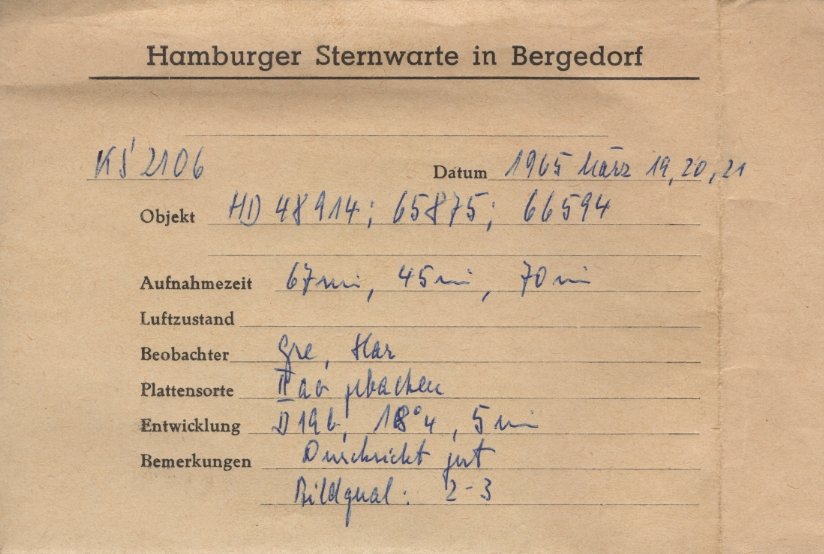 Hamburger Sternwarte in Bergedorf
KS 2106 Datum 1965 März 19, 20, 21
Objekt HD 48914; 65875; 66594
Aufnahmezeit 67 min, 45 min, 70 min
Luftzustand
Beobachter Gre, Har
Plattensorte IIao gebacken
Entwicklung D19b, 18°4, 5 min
Bemerkungen Durchsicht gut
Bildqual: 2-3